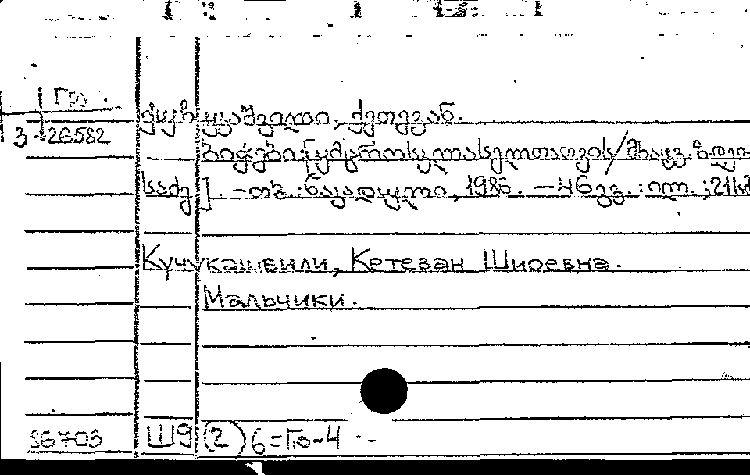 Гр.
3-26582
ქუჩუკაშვილი, ქეთევან.
ბიჭები
]. -თბ.: ნაკადული, 1986. - 46 გვ. : ილ. ; 21
Кучукашвили, Кетеван Шиоевна.
Мальчики.
36703 Ш9(2)6=Гр-4